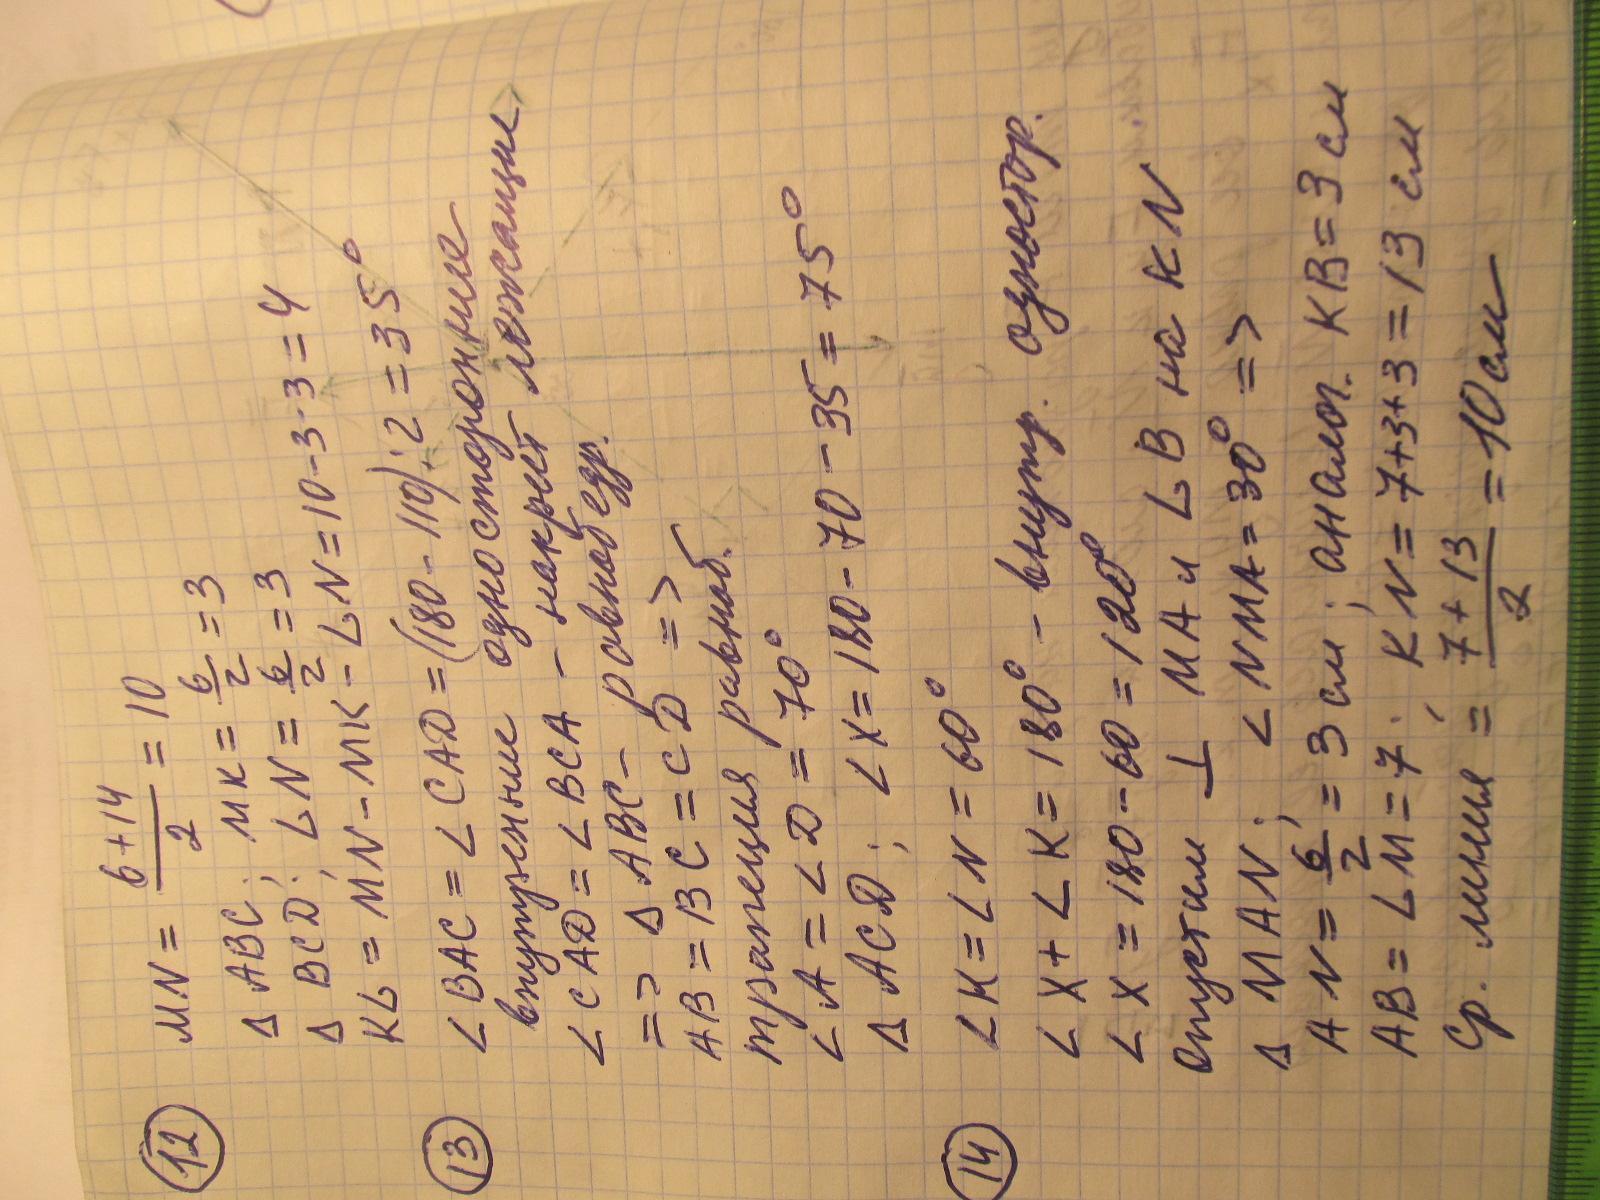 12
MN = (6+14)/2 = 10
Δ ABC; MK = 6/2 = 3
Δ BCD; LN = 6/2 = 3
KL = MN - MK - LN = 10-3-3 = 4
13
∠BAC = ∠CAD = (180-110):2 = 35°
внутренние односторонние
∠CAD = ∠BCA - накрест лежащие
=> Δ ABC - равнобедр.
AB = BC = CD =>
трапеция равноб.
∠A = ∠D = 70°
Δ ACD; ∠X = 180-70-35 = 75°
14
∠K = ∠N = 60°
∠X + ∠K = 180° - внутр. одностор.
∠X = 180-60 = 120°
Опустим ⊥ MA и LB на KN
Δ MAN; ∠NMA = 30° =>
AN = 6/2 = 3 см; аналог. KB = 3 см
AB = LM = 7; KN = 7+3+3 = 13 см
Ср. линия = (7+13)/2 = 10 см